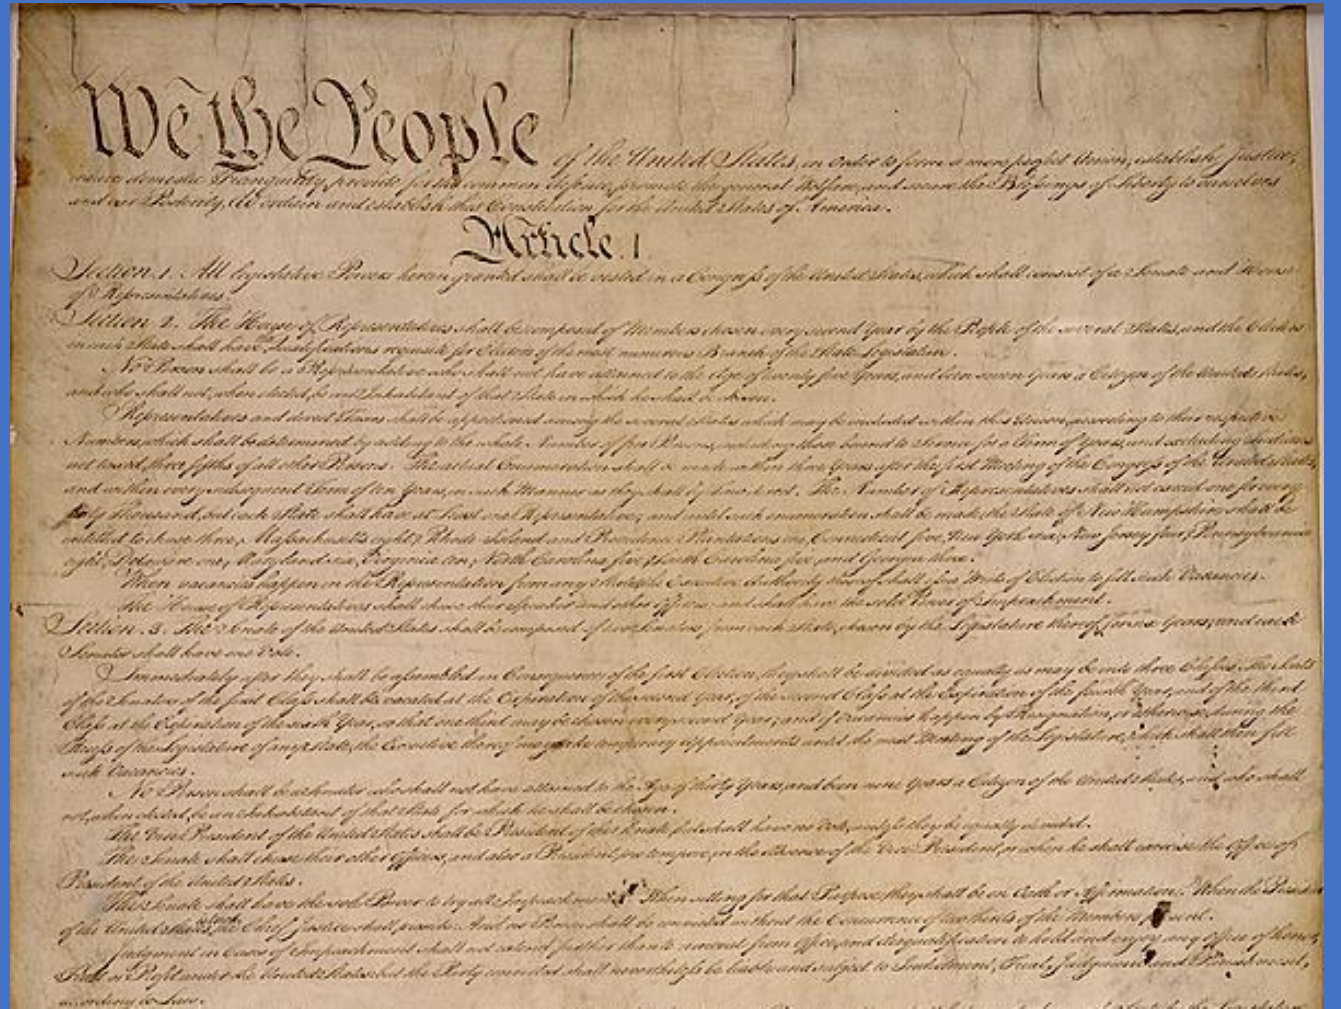 We the People of the United States, in Order to form a more perfect Union, establish Justice,
insure domestic Tranquility, provide for the common defence, promote the general Welfare, and secure the Blessings of Liberty to ourselves
and our Posterity, do ordain and establish this Constitution for the United States of America.
Article. I.
Section. 1. All legislative Powers herein granted shall be vested in a Congress of the United States, which shall consist of a Senate and House
of Representatives.
Section. 2. The House of Representatives shall be composed of Members chosen every second Year by the People of the several States, and the Electors
in each State shall have Qualifications requisite for Electors of the most numerous Branch of the State Legislature.
No Person shall be a Representative who shall not have attained to the Age of twenty five Years, and been seven Years a Citizen of the United States,
and who shall not, when elected, be an Inhabitant of that State in which he shall be chosen.
Representatives and direct Taxes shall be apportioned among the several States which may be included within this Union, according to their respective
Numbers, which shall be determined by adding to the whole Number of free Persons, including those bound to Service for a Term of Years, and excluding Indians
not taxed, three fifths of all other Persons. The actual Enumeration shall be made within three Years after the first Meeting of the Congress of the United States,
and within every subsequent Term of ten Years, in such Manner as they shall by Law direct. The Number of Representatives shall not exceed one for every
thirty Thousand, but each State shall have at Least one Representative; and until such enumeration shall be made, the State of New Hampshire shall be
entitled to chuse three, Massachusetts eight, Rhode-Island and Providence Plantations one, Connecticut five, New-York six, New Jersey four, Pennsylvania
eight, Delaware one, Maryland six, Virginia ten, North Carolina five, South Carolina five, and Georgia three.
When vacancies happen in the Representation from any State, the Executive Authority thereof shall issue Writs of Election to fill such Vacancies.
The House of Representatives shall chuse their Speaker and other Officers; and shall have the sole Power of Impeachment.
Section. 3. The Senate of the United States shall be composed of two Senators from each State, chosen by the Legislature thereof, for six Years; and each
Senator shall have one Vote.
Immediately after they shall be assembled in Consequence of the first Election, they shall be divided as equally as may be into three Classes. The Seats
of the Senators of the first Class shall be vacated at the Expiration of the second Year, of the second Class at the Expiration of the fourth Year, and of the third
Class at the Expiration of the sixth Year, so that one third may be chosen every second Year; and if Vacancies happen by Resignation, or otherwise, during the
Recess of the Legislature of any State, the Executive thereof may make temporary Appointments until the next Meeting of the Legislature, which shall then fill
such Vacancies.
No Person shall be a Senator who shall not have attained to the Age of thirty Years, and been nine Years a Citizen of the United States, and who shall
not, when elected, be an Inhabitant of that State for which he shall be chosen.
The Vice President of the United States shall be President of the Senate, but shall have no Vote, unless they be equally divided.
The Senate shall chuse their other Officers, and also a President pro tempore, in the Absence of the Vice President, or when he shall exercise the Office of
President of the United States.
The Senate shall have the sole Power to try all Impeachments. When sitting for that Purpose, they shall be on Oath or Affirmation. When the President
of the United States the Chief Justice shall preside: And no Person shall be convicted without the Concurrence of two thirds of the Members present.
Judgment in Cases of Impeachment shall not extend further than to removal from Office, and disqualification to hold and enjoy any Office of honor,
Trust or Profit under the United States: but the Party convicted shall nevertheless be liable and subject to Indictment, Trial, Judgment and Punishment,
according to Law.